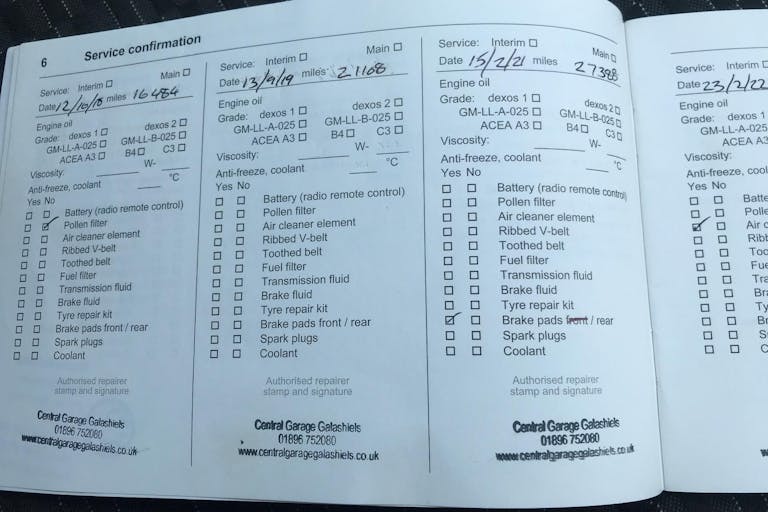 6 Service confirmation
Service: Interim ☐ Main ☐
Date 12/10/18 miles 16484
Engine oil
Grade: dexos 1 ☐ dexos 2 ☐
GM-LL-A-025 ☐ GM-LL-B-025 ☐
ACEA A3 ☐ B4 ☐ C3 ☐
Viscosity: ______ W-____
Anti-freeze, coolant ____ °C
Yes No
☐ ☐ Battery (radio remote control)
☐ ☑ Pollen filter
☐ ☐ Air cleaner element
☐ ☐ Ribbed V-belt
☐ ☐ Toothed belt
☐ ☐ Fuel filter
☐ ☐ Transmission fluid
☐ ☐ Brake fluid
☐ ☐ Tyre repair kit
☐ ☐ Brake pads front / rear
☐ ☐ Spark plugs
☐ ☐ Coolant
Authorised repairer
stamp and signature
Central Garage Galashiels
01896 752080
www.centralgaragegalashiels.co.uk
Service: Interim ☐ Main ☐
Date 13/9/19 miles 21168
Engine oil
Grade: dexos 1 ☐ dexos 2 ☐
GM-LL-A-025 ☐ GM-LL-B-025 ☐
ACEA A3 ☐ B4 ☐ C3 ☐
Viscosity: ______ W-____
Anti-freeze, coolant ____ °C
Yes No
☐ ☐ Battery (radio remote control)
☐ ☐ Pollen filter
☐ ☐ Air cleaner element
☐ ☐ Ribbed V-belt
☐ ☐ Toothed belt
☐ ☐ Fuel filter
☐ ☐ Transmission fluid
☐ ☐ Brake fluid
☐ ☐ Tyre repair kit
☐ ☐ Brake pads front / rear
☐ ☐ Spark plugs
☐ ☐ Coolant
Authorised repairer
stamp and signature
Central Garage Galashiels
01896 752080
www.centralgaragegalashiels.co.uk
Service: Interim ☐ Main ☐
Date 15/2/21 miles 27398
Engine oil
Grade: dexos 1 ☐ dexos 2 ☐
GM-LL-A-025 ☐ GM-LL-B-025 ☐
ACEA A3 ☐ B4 ☐ C3 ☐
Viscosity: ______ W-____
Anti-freeze, coolant ____ °C
Yes No
☐ ☐ Battery (radio remote control)
☐ ☐ Pollen filter
☐ ☐ Air cleaner element
☐ ☐ Ribbed V-belt
☐ ☐ Toothed belt
☐ ☐ Fuel filter
☐ ☐ Transmission fluid
☐ ☐ Brake fluid
☐ ☐ Tyre repair kit
☑ ☐ Brake pads front / rear
☐ ☐ Spark plugs
☐ ☐ Coolant
Authorised repairer
stamp and signature
Central Garage Galashiels
01896 752080
www.centralgaragegalashiels.co.uk
Service: Interim
Date 23/2/22
Engine oil
Grade: dexos 1
GM-LL-A-02
ACEA A3
Viscosity:
Anti-freeze, cool
Yes No
☐ ☐ Batte
☐ ☐ Polle
☑ ☐ Air c
☐ ☐ Ribb
☐ ☐ Too
☐ ☐ Fue
☐ ☐ Tra
☐ ☐ Bra
☐ ☐ Ty
☐ ☐ Br
☐ ☐ S
☐ ☐ C